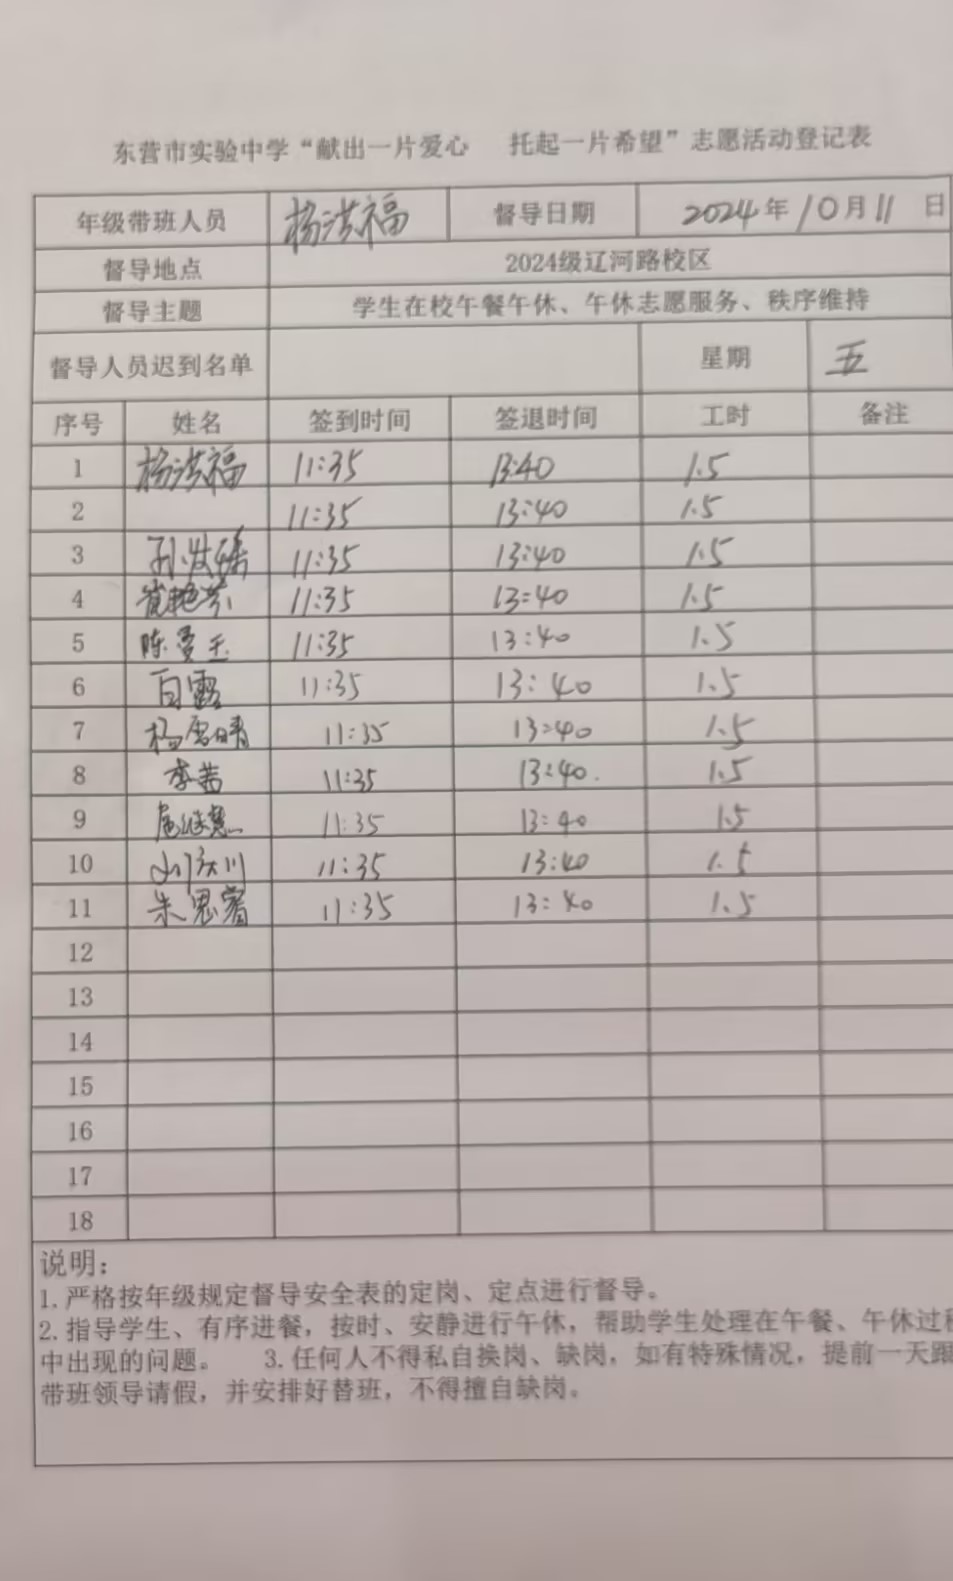 东营市实验中学“献出一片爱心 托起一片希望”志愿活动登记表
年级带班人员 杨洪福 督导日期 2024年10月11日
督导地点 2024级辽河路校区
督导主题 学生在校午餐午休、午休志愿服务、秩序维持
督导人员迟到名单 星期 五
序号 姓名 签到时间 签退时间 工时 备注
1 杨洪福 11:35 13:40 1.5
2 11:35 13:40 1.5
3 11:35 13:40 1.5
4 崔艳芬 11:35 13:40 1.5
5 陈曼玉 11:35 13:40 1.5
6 白露 11:35 13:40 1.5
7 杨雪晴 11:35 13:40 1.5
8 李茜 11:35 13:40. 1.5
9 11:35 13:40 1.5
10 11:35 13:40 1.5
11 朱思睿 11:35 13:40 1.5
12
13
14
15
16
17
18
说明：
1.严格按年级规定督导安全表的定岗、定点进行督导。
2.指导学生、有序进餐，按时、安静进行午休，帮助学生处理在午餐、午休过程
中出现的问题。 3.任何人不得私自换岗、缺岗，如有特殊情况，提前一天跟
带班领导请假，并安排好替班，不得擅自缺岗。